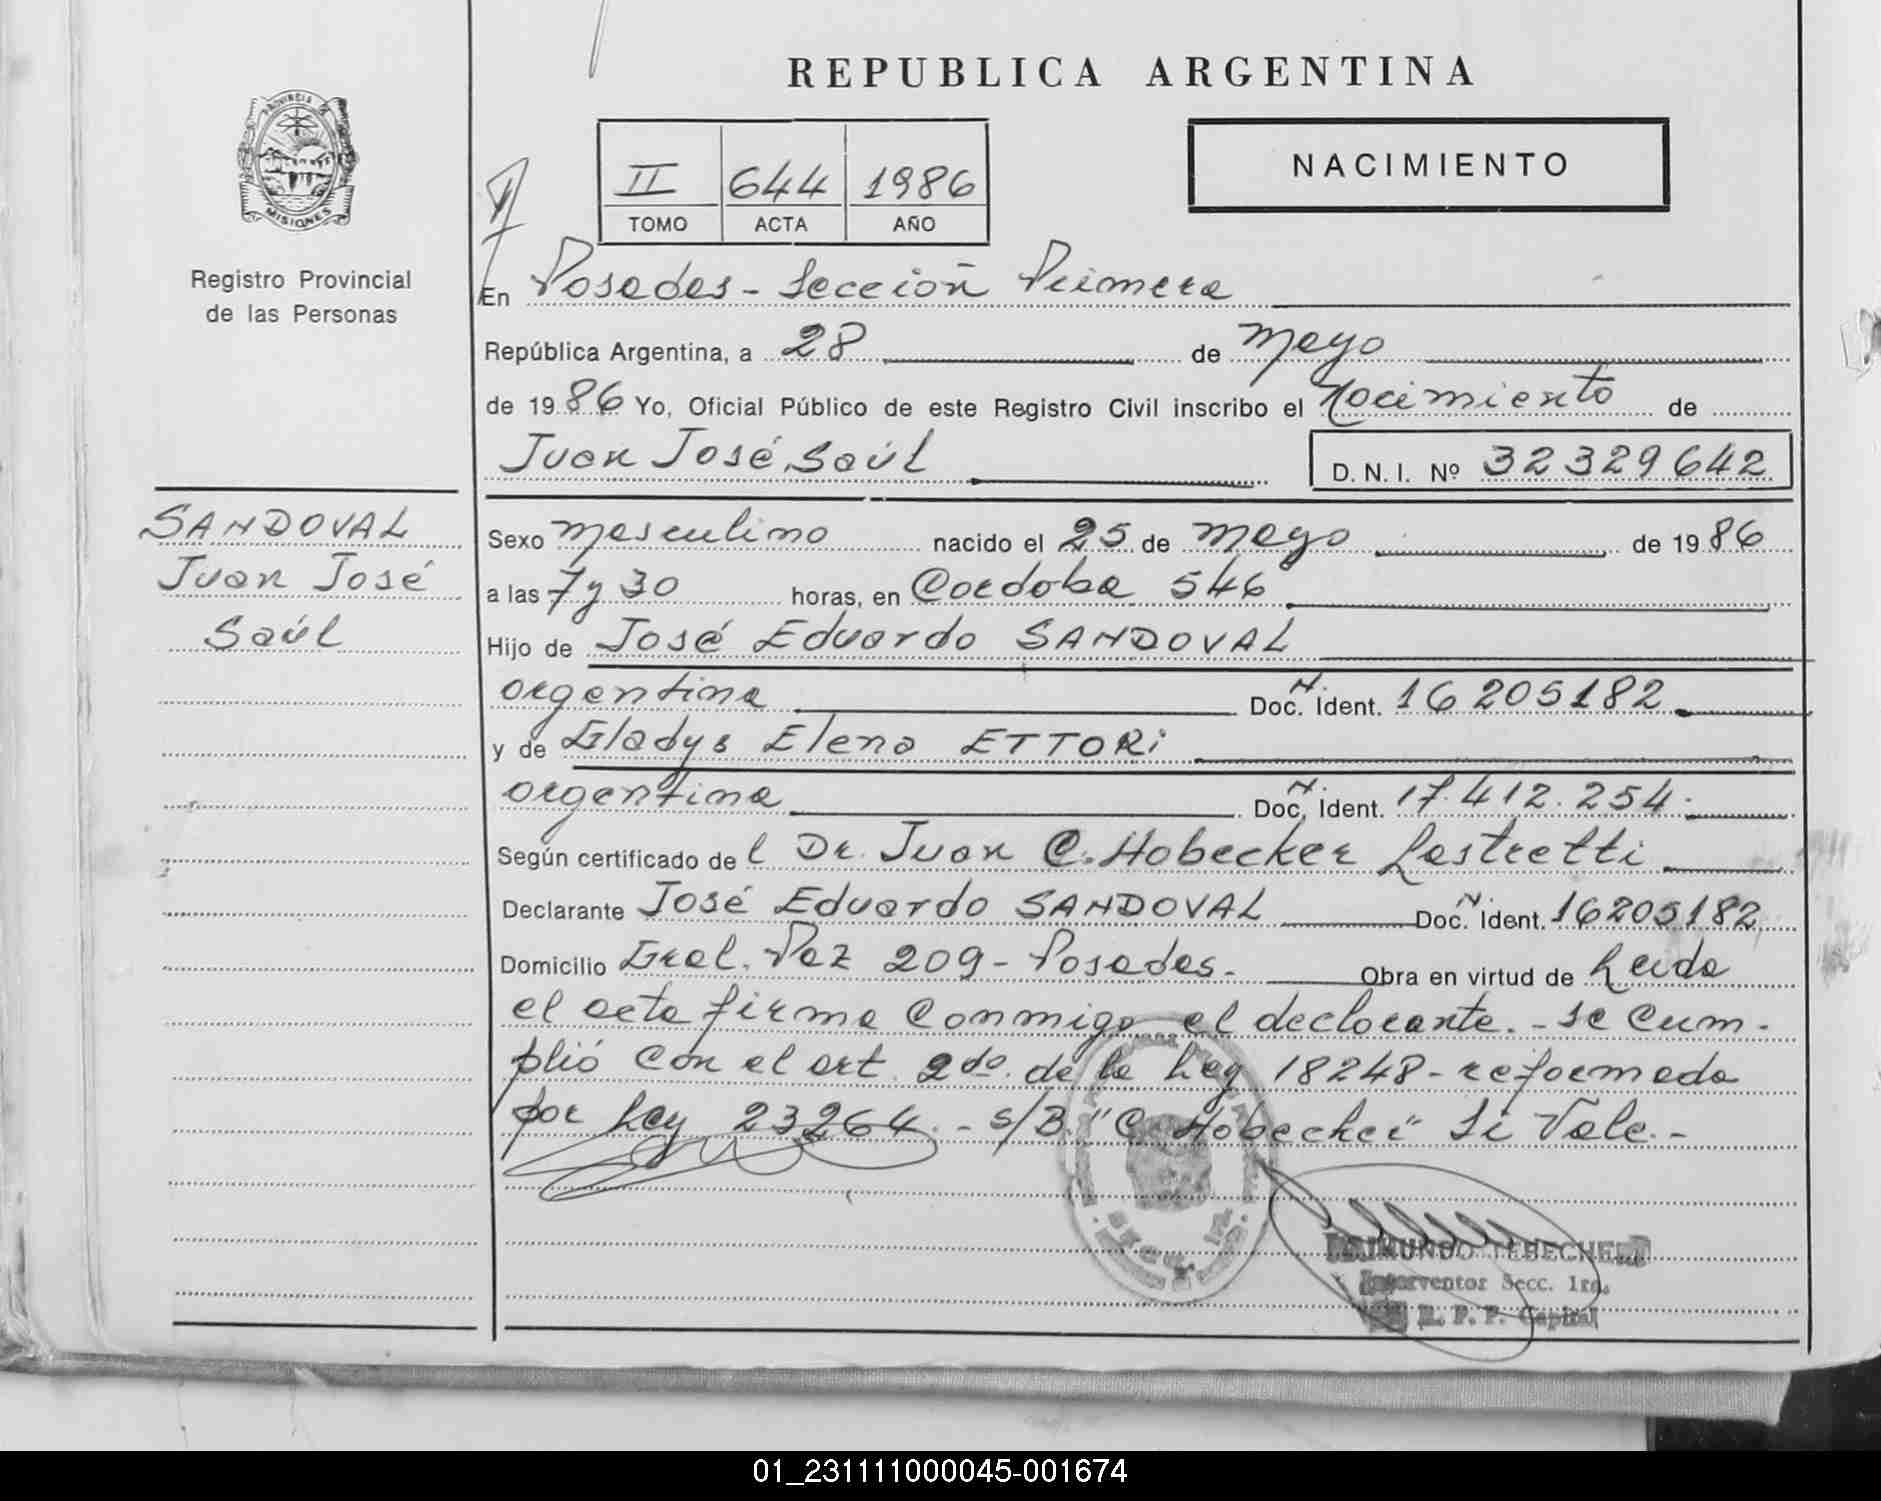 REPUBLICA ARGENTINA
PROVINCIA DE
MISIONES
Registro Provincial
de las Personas
II 644 1986
TOMO ACTA AÑO
NACIMIENTO
En Posadas - Sección Primera
República Argentina, a 28 de Mayo
de 1986 Yo, Oficial Público de este Registro Civil inscribo el Nacimiento de
Juan José Saúl D. N. I. Nº 32329642
SANDOVAL
Juan José
Saúl
Sexo masculino nacido el 25 de Mayo de 1986
a las 7 y 30 horas, en Cordoba 546
Hijo de José Eduardo SANDOVAL
argentina Doc. N. Ident. 16205182
y de Gladys Elena ETTORi
argentina Doc. N. Ident. 17.412.254.
Según certificado del Dr. Juan C. Hobecker Lastretti
Declarante José Eduardo SANDOVAL Doc. N. Ident. 16205182
Domicilio Gral. Paz 209 - Posadas. Obra en virtud de Leida
el acta firma conmigo el declarante. - Se cum-
plió con el art. 2do. de la Ley 18248 - reformada
por Ley 23264. - s/B. "C. Hobecker" Si Vale. -
RAIMUNDO TEBECHERI
Interventor Secc. 1ra.
R. P. P. Capital
01_231111000045-001674